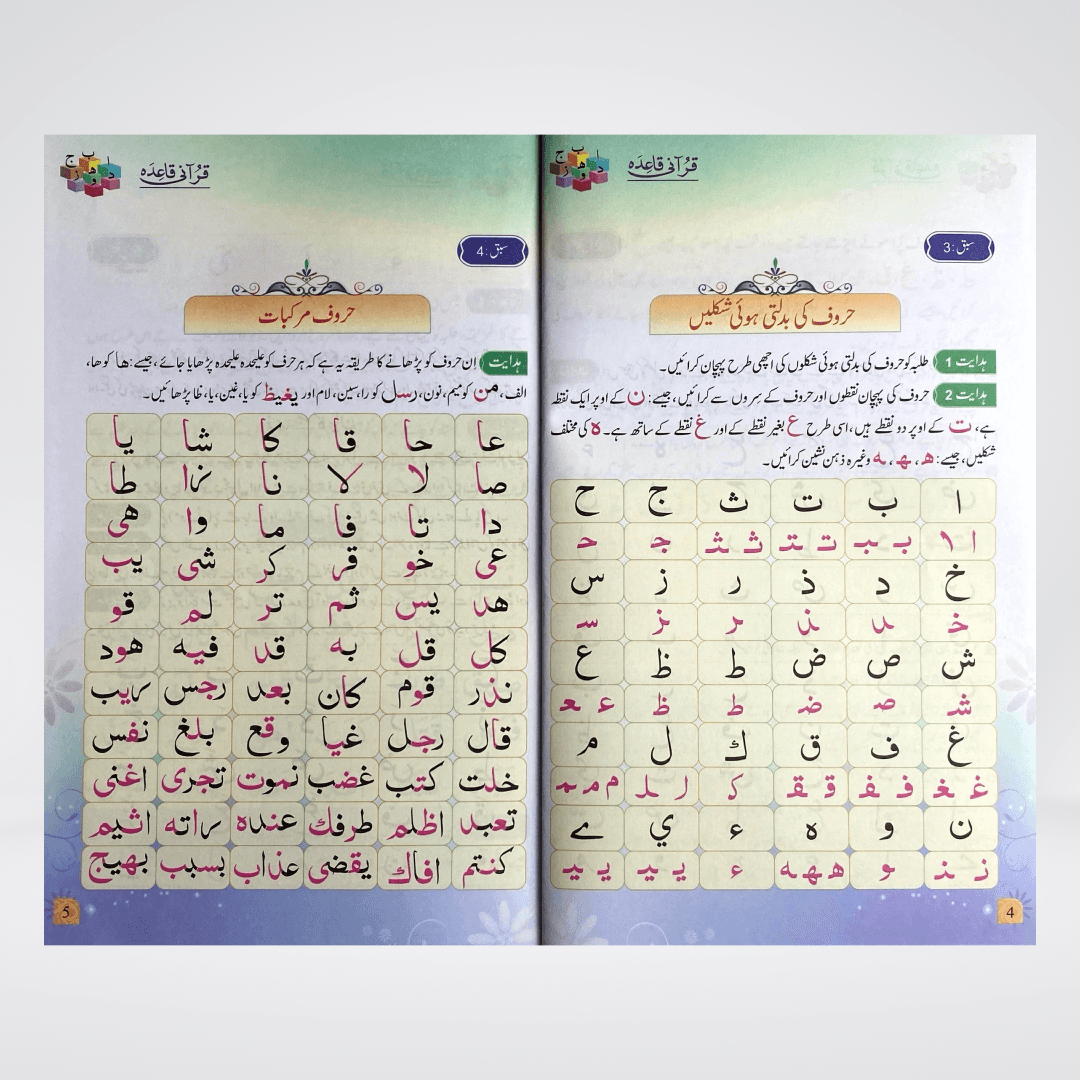 قرآنی قاعدہ
سبق: 3
حروف کی بدلتی ہوئی شکلیں
ہدایت 1 طلبہ کو حروف کی بدلتی ہوئی شکلوں کی اچھی طرح پہچان کرائیں۔
ہدایت 2 حروف کی پہچان نقطوں اور حروف کے سِروں سے کرائیں، جیسے: ن کے اوپر ایک نقطہ
ہے، ت کے اوپر دو نقطے ہیں، اسی طرح ع بغیر نقطے کے اور غ نقطے کے ساتھ ہے۔ ہ کی مختلف
شکلیں، جیسے: ھ، ہ، ہ وغیرہ ذہن نشین کرائیں۔
ا ب ت ث ج ح
ا لا بـ ـبـ تـ ـتـ ثـ ـثـ جـ حـ
خ د ذ ر ز س
خـ ـد ـذ ـر ـز سـ
ش ص ض ط ظ ع
شـ صـ ضـ ط ظ عـ ـعـ
غ ف ق ك ل م
غـ ـغـ فـ ـفـ قـ ـقـ کـ لـ ـلـ م مـ ـمـ
ن و ہ ء ي ے
نـ ـنـ ـو ھ ـهـ ہ ء یـ ـیـ یـ ـیـ
4
قرآنی قاعدہ
سبق: 4
حروف مرکبات
ہدایت اِن حروف کو پڑھانے کا طریقہ یہ ہے کہ ہر حرف کو علیحدہ علیحدہ پڑھایا جائے، جیسے: ھا کو ھا،
الف، من کو میم، نون، رسل کو را، سین، لام اور یغیظ کو یا، غین، یا، ظا پڑھائیں۔
عا حا قا کا شا یا
صا لا لا نا زا طا
دا تا فا ما وا هی
عی خو قر کر شی یب
هد یس ثم تر لم قو
کل قل به قد فیه هود
نذر قوم کان بعد رجس ریب
قال رجل غیا وقع بلغ نفس
خلت کتب غضب نموت تجری اغنی
تعبد اظلم طرفك عنده راته اثیم
کنتم افاك یقضی عذاب بسبب بهیج
5